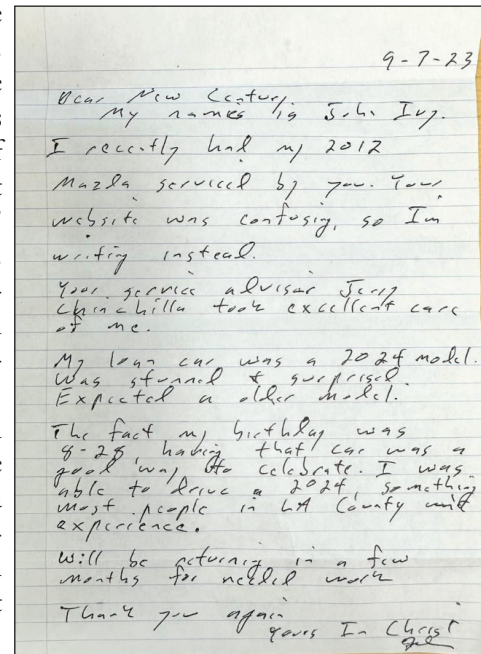 9-7-23
Dear New Century,
My names is John Ivy.
I recently had my 2012
Mazda serviced by you. Your
website was confusig, so Im
writing instead.
Your service advisor Jerry
Chinchilla took excellent care
of me.
My loan car was a 2024 model.
Was stunned & surprised.
Expected a older model.
The fact my birthday was
8-28, having that car was a
good way to celebrate. I was
able to drive a 2024, something
most people in LA County
experience.
Will be returnig in a few
months for needed work
Thank you again
yours In Christ